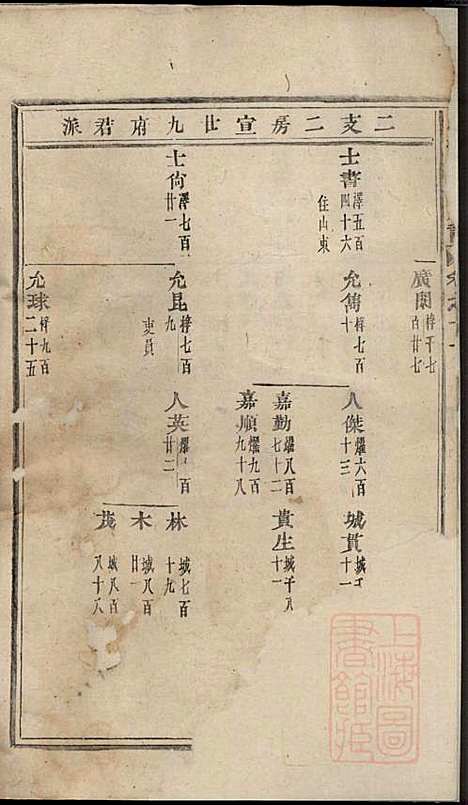 二支二房宣廿九府君派
廣閑 梓千七百廿七
士書 澤五百四十六
住山東
允鐫 梓七百十
人傑 燿六百十三
城貫 城千十一
嘉勤 燿八百七十二
貴生 城千八十一
嘉順 燿九百九十八
士尙 澤七百廿一
允昆 梓七百九
吏員
人英 燿百廿二
林 城七百十九
木 城八百廿一
茂 城八百八十八
允球 梓九百二十五
上海圖書館